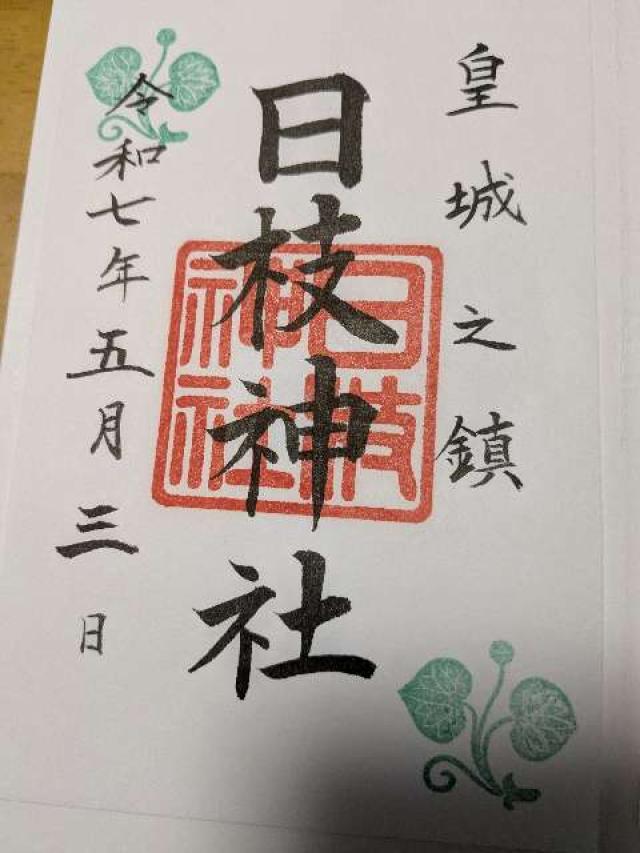 皇城之鎮
日枝神社
日枝神社
令和七年五月三日